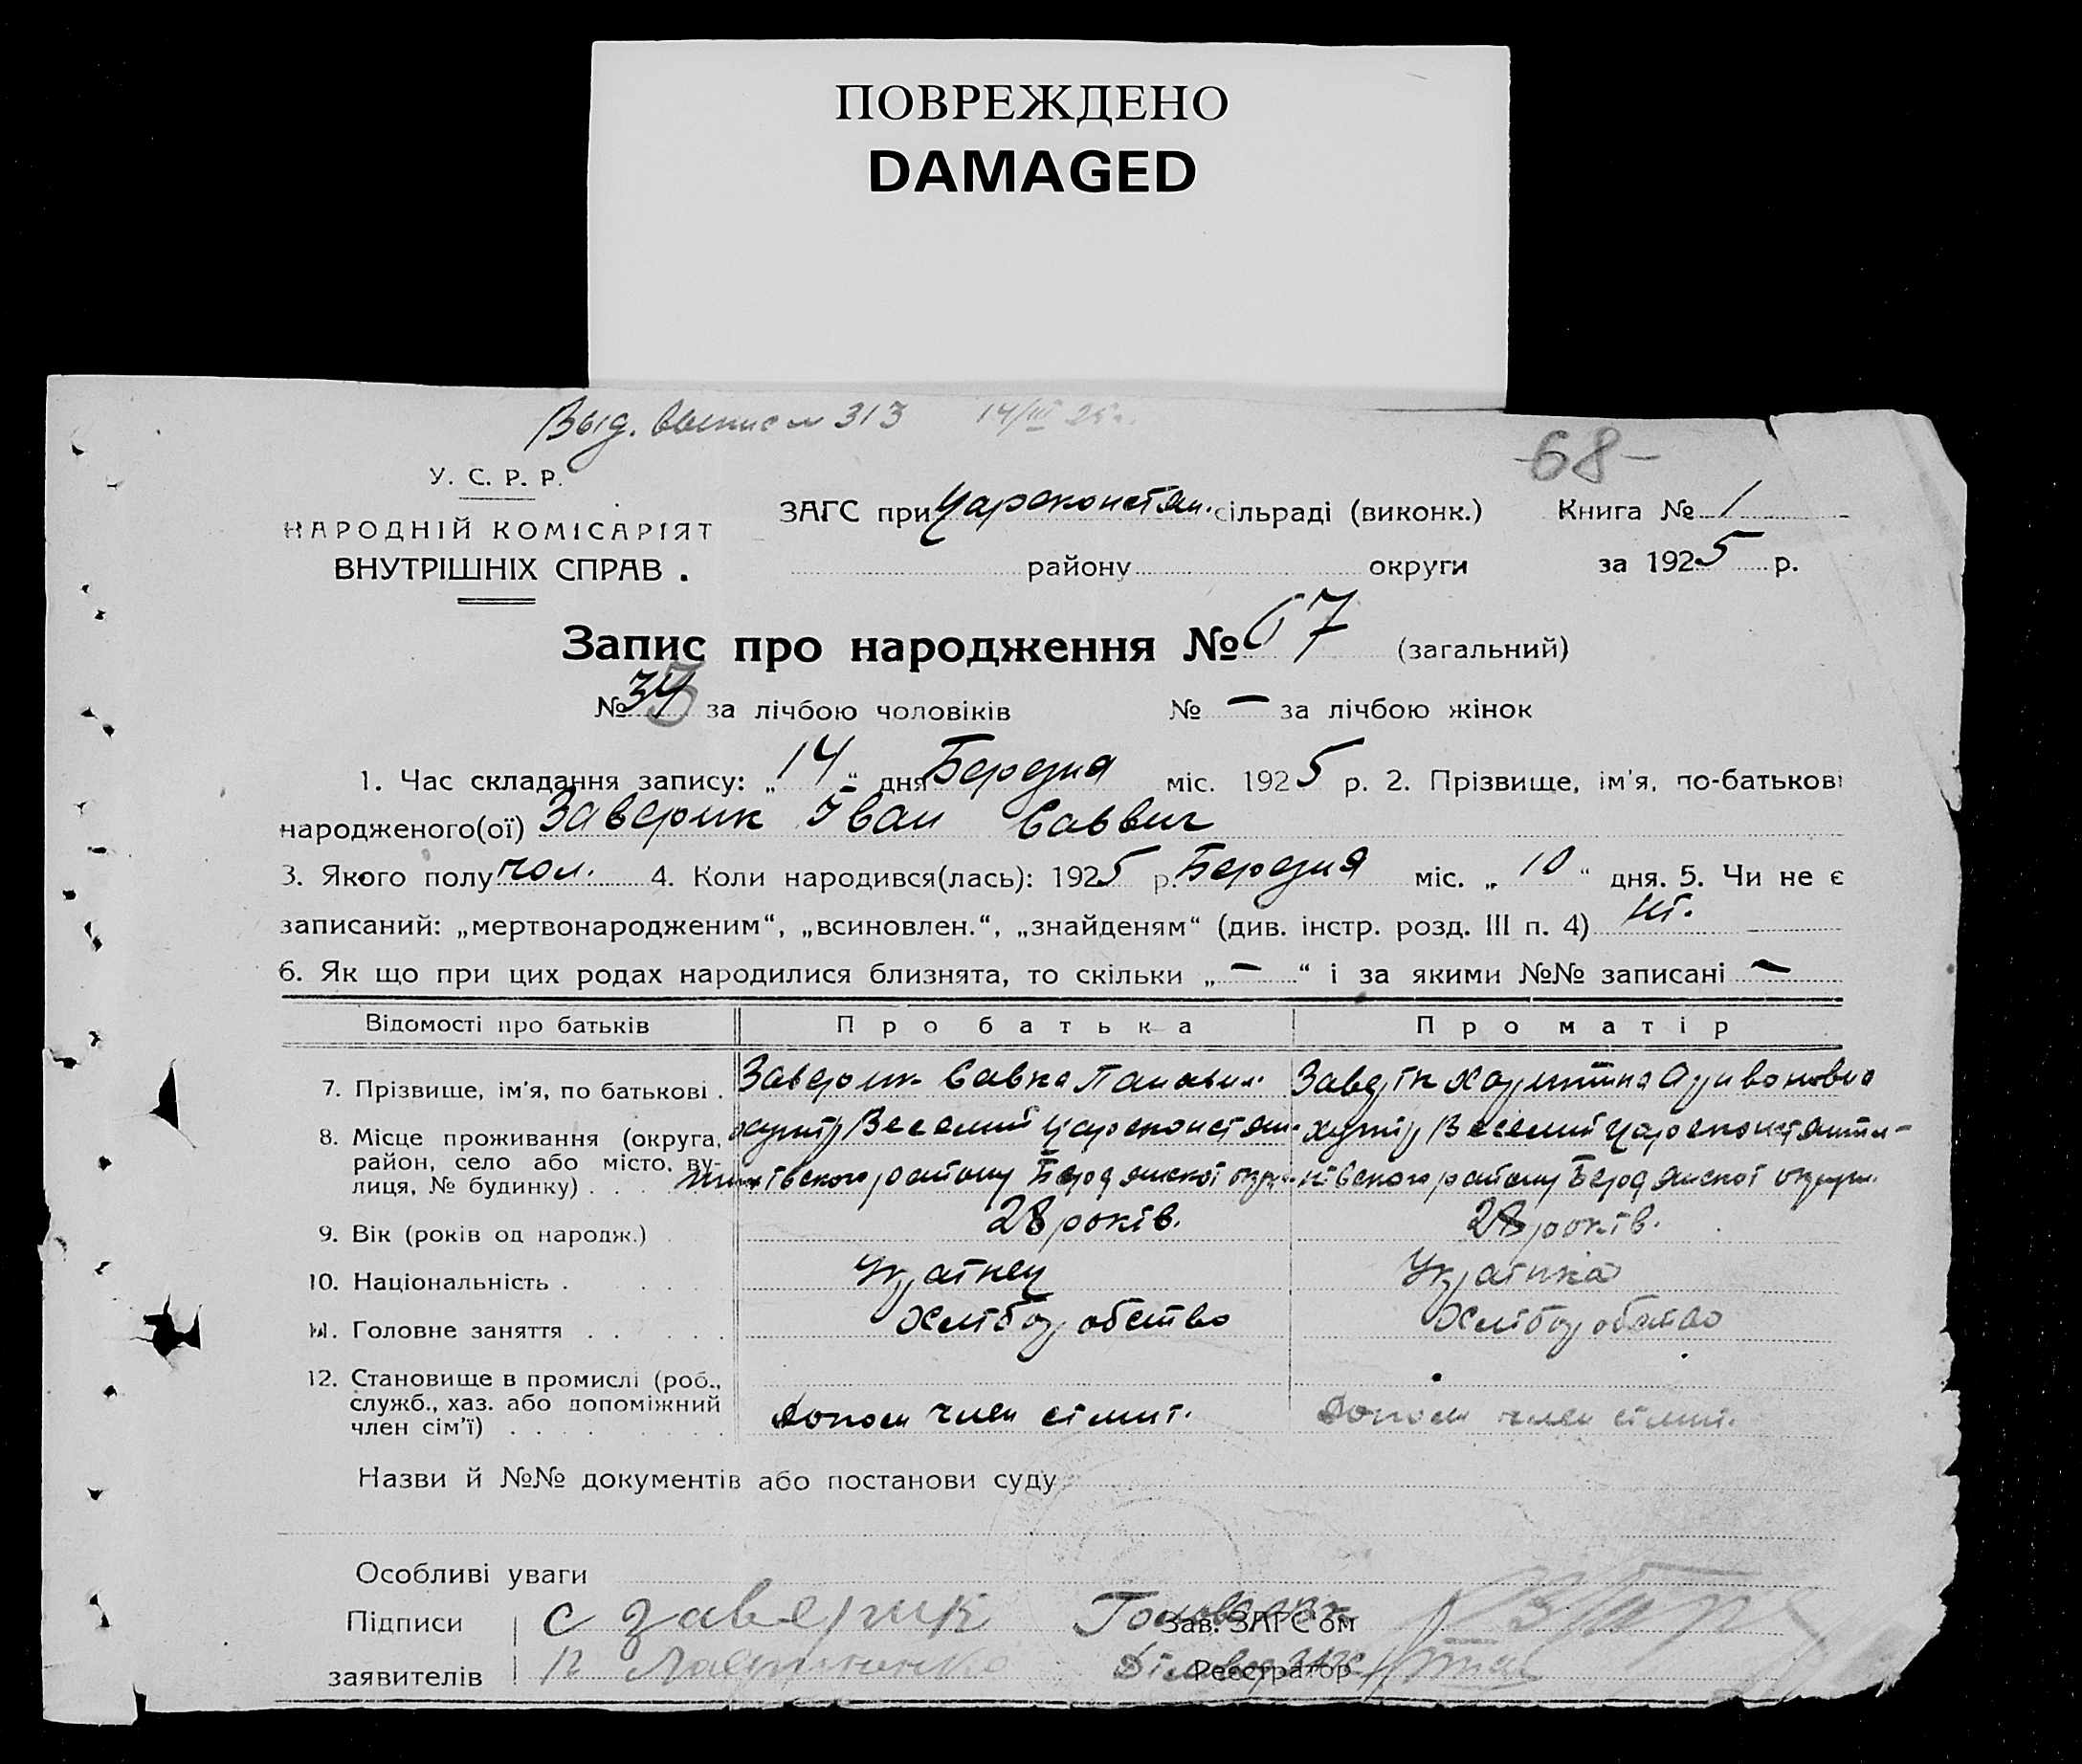 ПОВРЕЖДЕНО
DAMAGED
Выд. выпись 313 14/III 25 г.
-68-
У. С. Р. Р.
НАРОДНІЙ КОМІСАРІЯТ
ВНУТРІШНІХ СПРАВ.
ЗАГС при Цареконстан. сільраді (виконк.) Книга № 1
району округи за 1925 р.
Запис про народження № 67 (загальний)
№ 34 за лічбою чоловіків № — за лічбою жінок
1. Час складання запису: „14“ дня Березня міс. 1925 р. 2. Прізвище, ім'я, по-батькові
народженого(ої) Заверик Іван Саввич
3. Якого полу чол. 4. Коли народився(лась): 1925 р. Березня міс. „10“ дня. 5. Чи не є
записаний: „мертвонародженим“, „всиновлен.“, „знайденям“ (див. інстр. розд. III п. 4) ні.
6. Як що при цих родах народилися близнята, то скільки „—“ і за якими №№ записані —
Відомості про батьків Про батька Про матір
7. Прізвище, ім'я, по батькові . Заверик Савка Заверік
8. Місце проживання (округа, район, село або місто, вулиця, № будинку) . . . хутір Веселий Цареконстан- хутір Веселий Цареконстянти-
району Бердянської округи нівського району Бердянської округи
9. Вік (років од народж.) 28 років. 28 років.
10. Національність . Украінец Украінка
11. Головне заняття . . . . Хліборобство Хліборобство
12. Становище в промислі (роб., служб., хаз. або допоміжний член сім'ї) . . . . допом член сімиі. допом член сімиі.
Назви й №№ документів або постанови суду
Особливі уваги
Підписи С Заверик Зав. ЗАГС'ом
заявителів Реєстратор